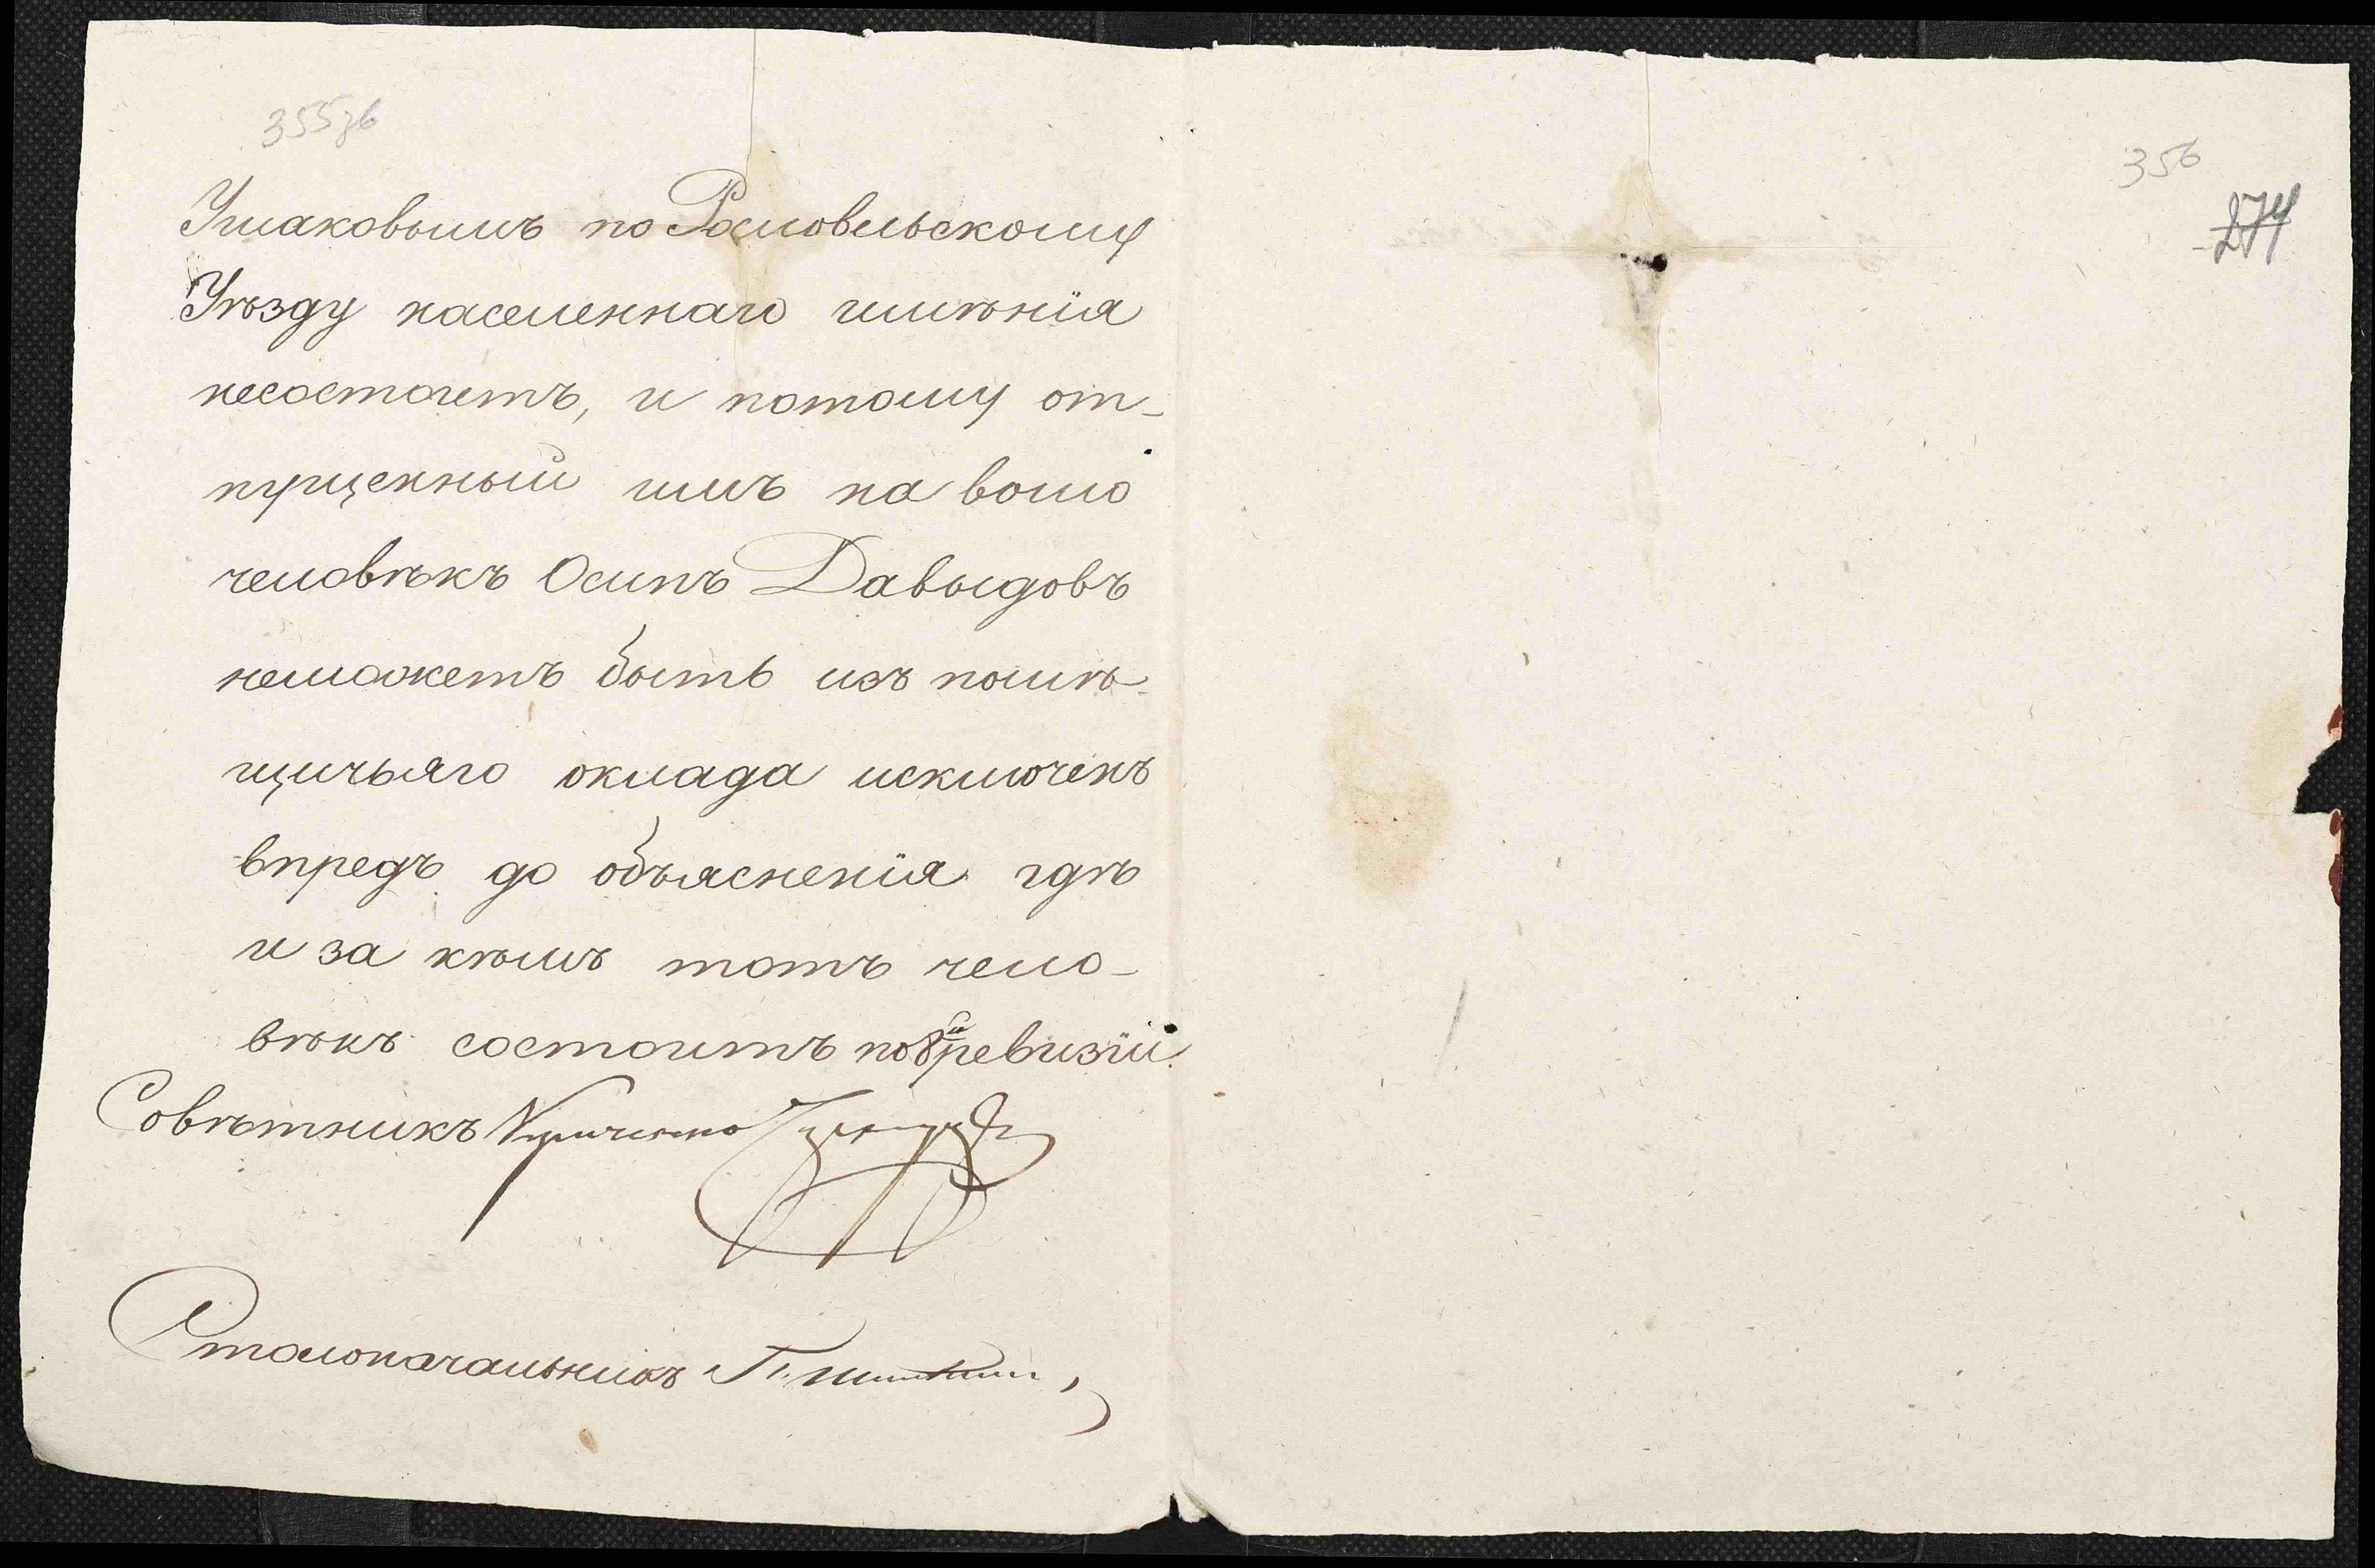 355 об
Ушаковымъ по Рославльскому
Уѣзду населеннаго имѣнія
несостоитъ, и потому от-
пущенный имъ на волю
человѣкъ Осипъ Давыдовъ
неможетъ быть изъ помѣ-
щичьяго оклада исключенъ
впредь до объясненія гдѣ
и за кѣмъ тотъ чело-
вѣкъ состоитъ по 8й ревизіи.
Совѣтникъ
Столоначальникъ
356
274